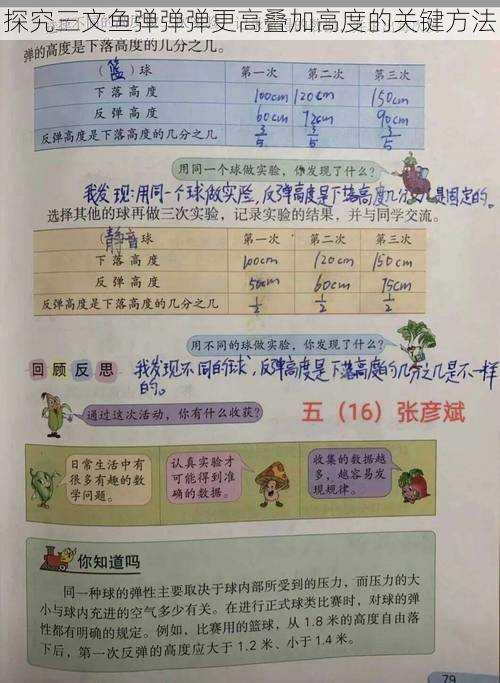 探究三文鱼弹弹弹更高叠加高度的关键方法
弹的高度是下落高度的几分之几。
（篮）球 第一次 第二次 第三次
下落高度 100cm 120cm 150cm
反弹高度 60cm 72cm 90cm
反弹高度是下落高度的几分之几 3/5 3/5 3/5
用同一个球做实验，你发现了什么？
我发现:用同一个球做实险,反弹高度是下落高度几分 是固定的。
选择其他的球再做三次实验，记录实验的结果，并与同学交流。
（静音球 第一次 第二次 第三次
下落高度 100cm 120cm 150cm
反弹高度 50cm 60cm 75cm
反弹高度是下落高度的几分之几 1/2 1/2 1/2
用不同的球做实验，你发现了什么？
回顾反思 我发现不同的球,反弹高度是下落高度的几分之几是不一样
的。
通过这次活动，你有什么收获？
五（16）张彦斌
日常生活中有
很多有趣的数
学问题。
认真实验才
可能得到准
确的数据。
收集的数据越
多，越容易发
现规律。
你知道吗
同一种球的弹性主要取决于球内部所受到的压力，而压力的大
小与球内充进的空气多少有关。在进行正式球类比赛时，对球的弹
性都有明确的规定。例如，比赛用的篮球，从 1.8 米的高度自由落
下后，第一次反弹的高度应大于 1.2 米、小于 1.4 米。
79